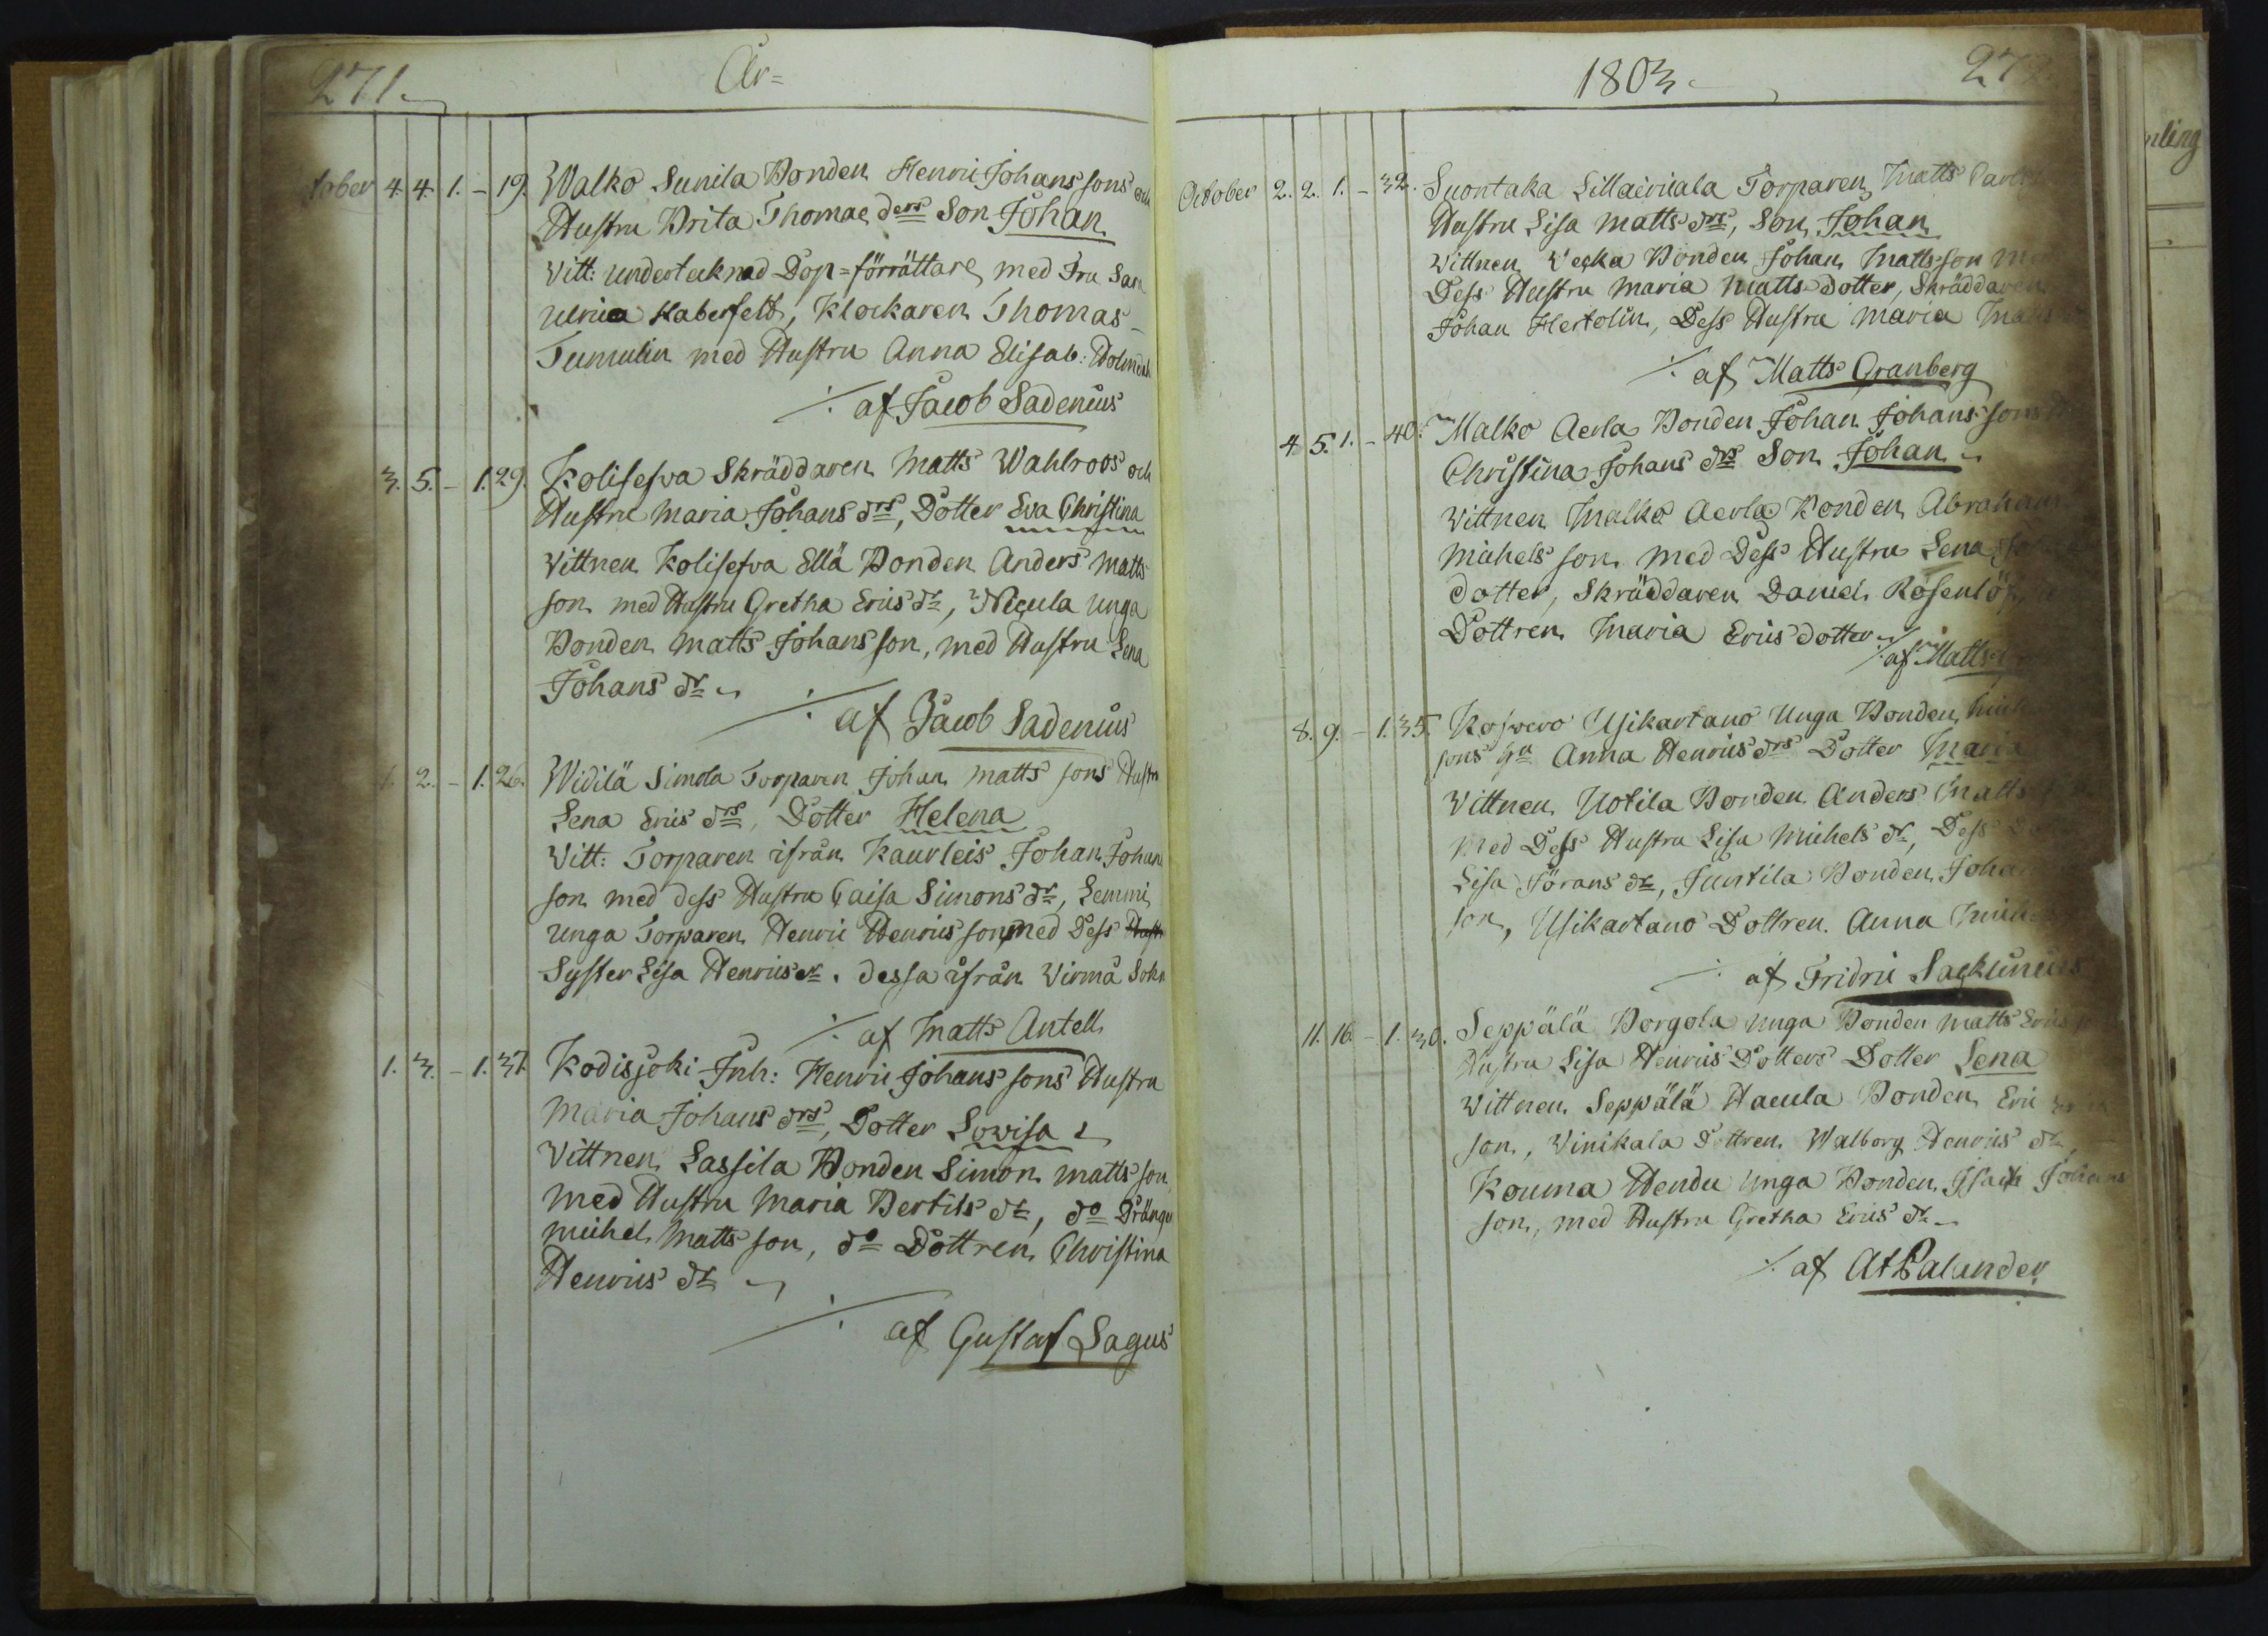 271.
År=
tober 4. 4. 1. - 19. Walko Sunila Bonden Henric Johans sons och
Hustru Brita Thomae ders Son Johan
Vitt: undertecknad Dop=förrättare med Fru Sara
Ulrica Haberfelt, Klockaren Thomas
Tumulin med Hustru Anna Elisab:
./. af Jacob Sadenius
3. 5. - 1. 29. Kolisefva Skräddaren Matts Wahlroos och
Hustru Maria Johans drs, Dotter Eva Christina
Vittnen Kolisefva Ellä Bonden Anders Matts
son med Hustru Gretha Erics dr, Nicula unga
Bonden Matts Johans son, med Hustru Lena
Johans dr
./. af Jacob Sadenius
1. 2. - 1. 26. Widilä Simola Torparen Johan Matts sons Hustru
Lena Erics drs, Dotter Helena
Vitt: Torparen ifrån Kaurleis Johan Johans
son med dess Hustru Caisa Simons dr, Lemmi
unga Torparen Henric Henrics son med Dess Hustr
Syster Lisa Henrics dr. dessa ifrån Virmå Sokn
./. af Matts Antell
1. 3. - 1. 37. Kodisjoki Inh: Henric Johans sons Hustru
Maria Johans drs, Dotter Lovisa
Vittnen Lassila Bonden Simon Matts son
med Hustru Maria Bertils dr, do Drängen
Michel Matts son, do Dottren Christina
Henrics dr
./. af Gustaf Lagus
1803
27
October 2. 2. 1. - 32. Suontaka Sillaivuala Torparen Matts
Hustru Lisa Matts drs, Son Johan
Vittnen Vecka Bonden Johan Matts son
Dess Hustru Maria Matts Dotter, Skräddaren
Johan Hertolin, Dess Hustru Maria
./. af Matts Granberg
4. 5. 1. - 40. Malko Aerla Bonden Johan Johans sons
Christina Johans drs Son Johan
Vittnen Malko Aerla Bonden Abraham
Michels son med Dess Hustru Lena
dotter, Skräddaren Daniel Rosenlöf,
Dottren Maria Erics dotter
./. af Matts
8. 9. - 1. 35. Kosvero Usikartano Unga Bonden
sons Anna Henrics drs Dotter Maria
Vittnen Uotila Bonden Anders Matts
med Dess Hustru Lisa Michels dr, Dess
Lisa Jörans dr, Juntila Bonden Johan
son, Usikartano Dottren Anna
./. af Fridric Sacklinius
11. 16. - 1. 30. Seppälä Borgola unga Bonden Matts Erics
Hustru Lisa Henrics Dotters Dotter Lena
Vittnen Seppälä Hacula Bonden Eric
son, Vinikala Dottren Walborg Henrics dr,
Kouma Hendu unga Bonden Isaac Johans
son, med Hustru Gretha Erics dr
./. af At Palander
nling